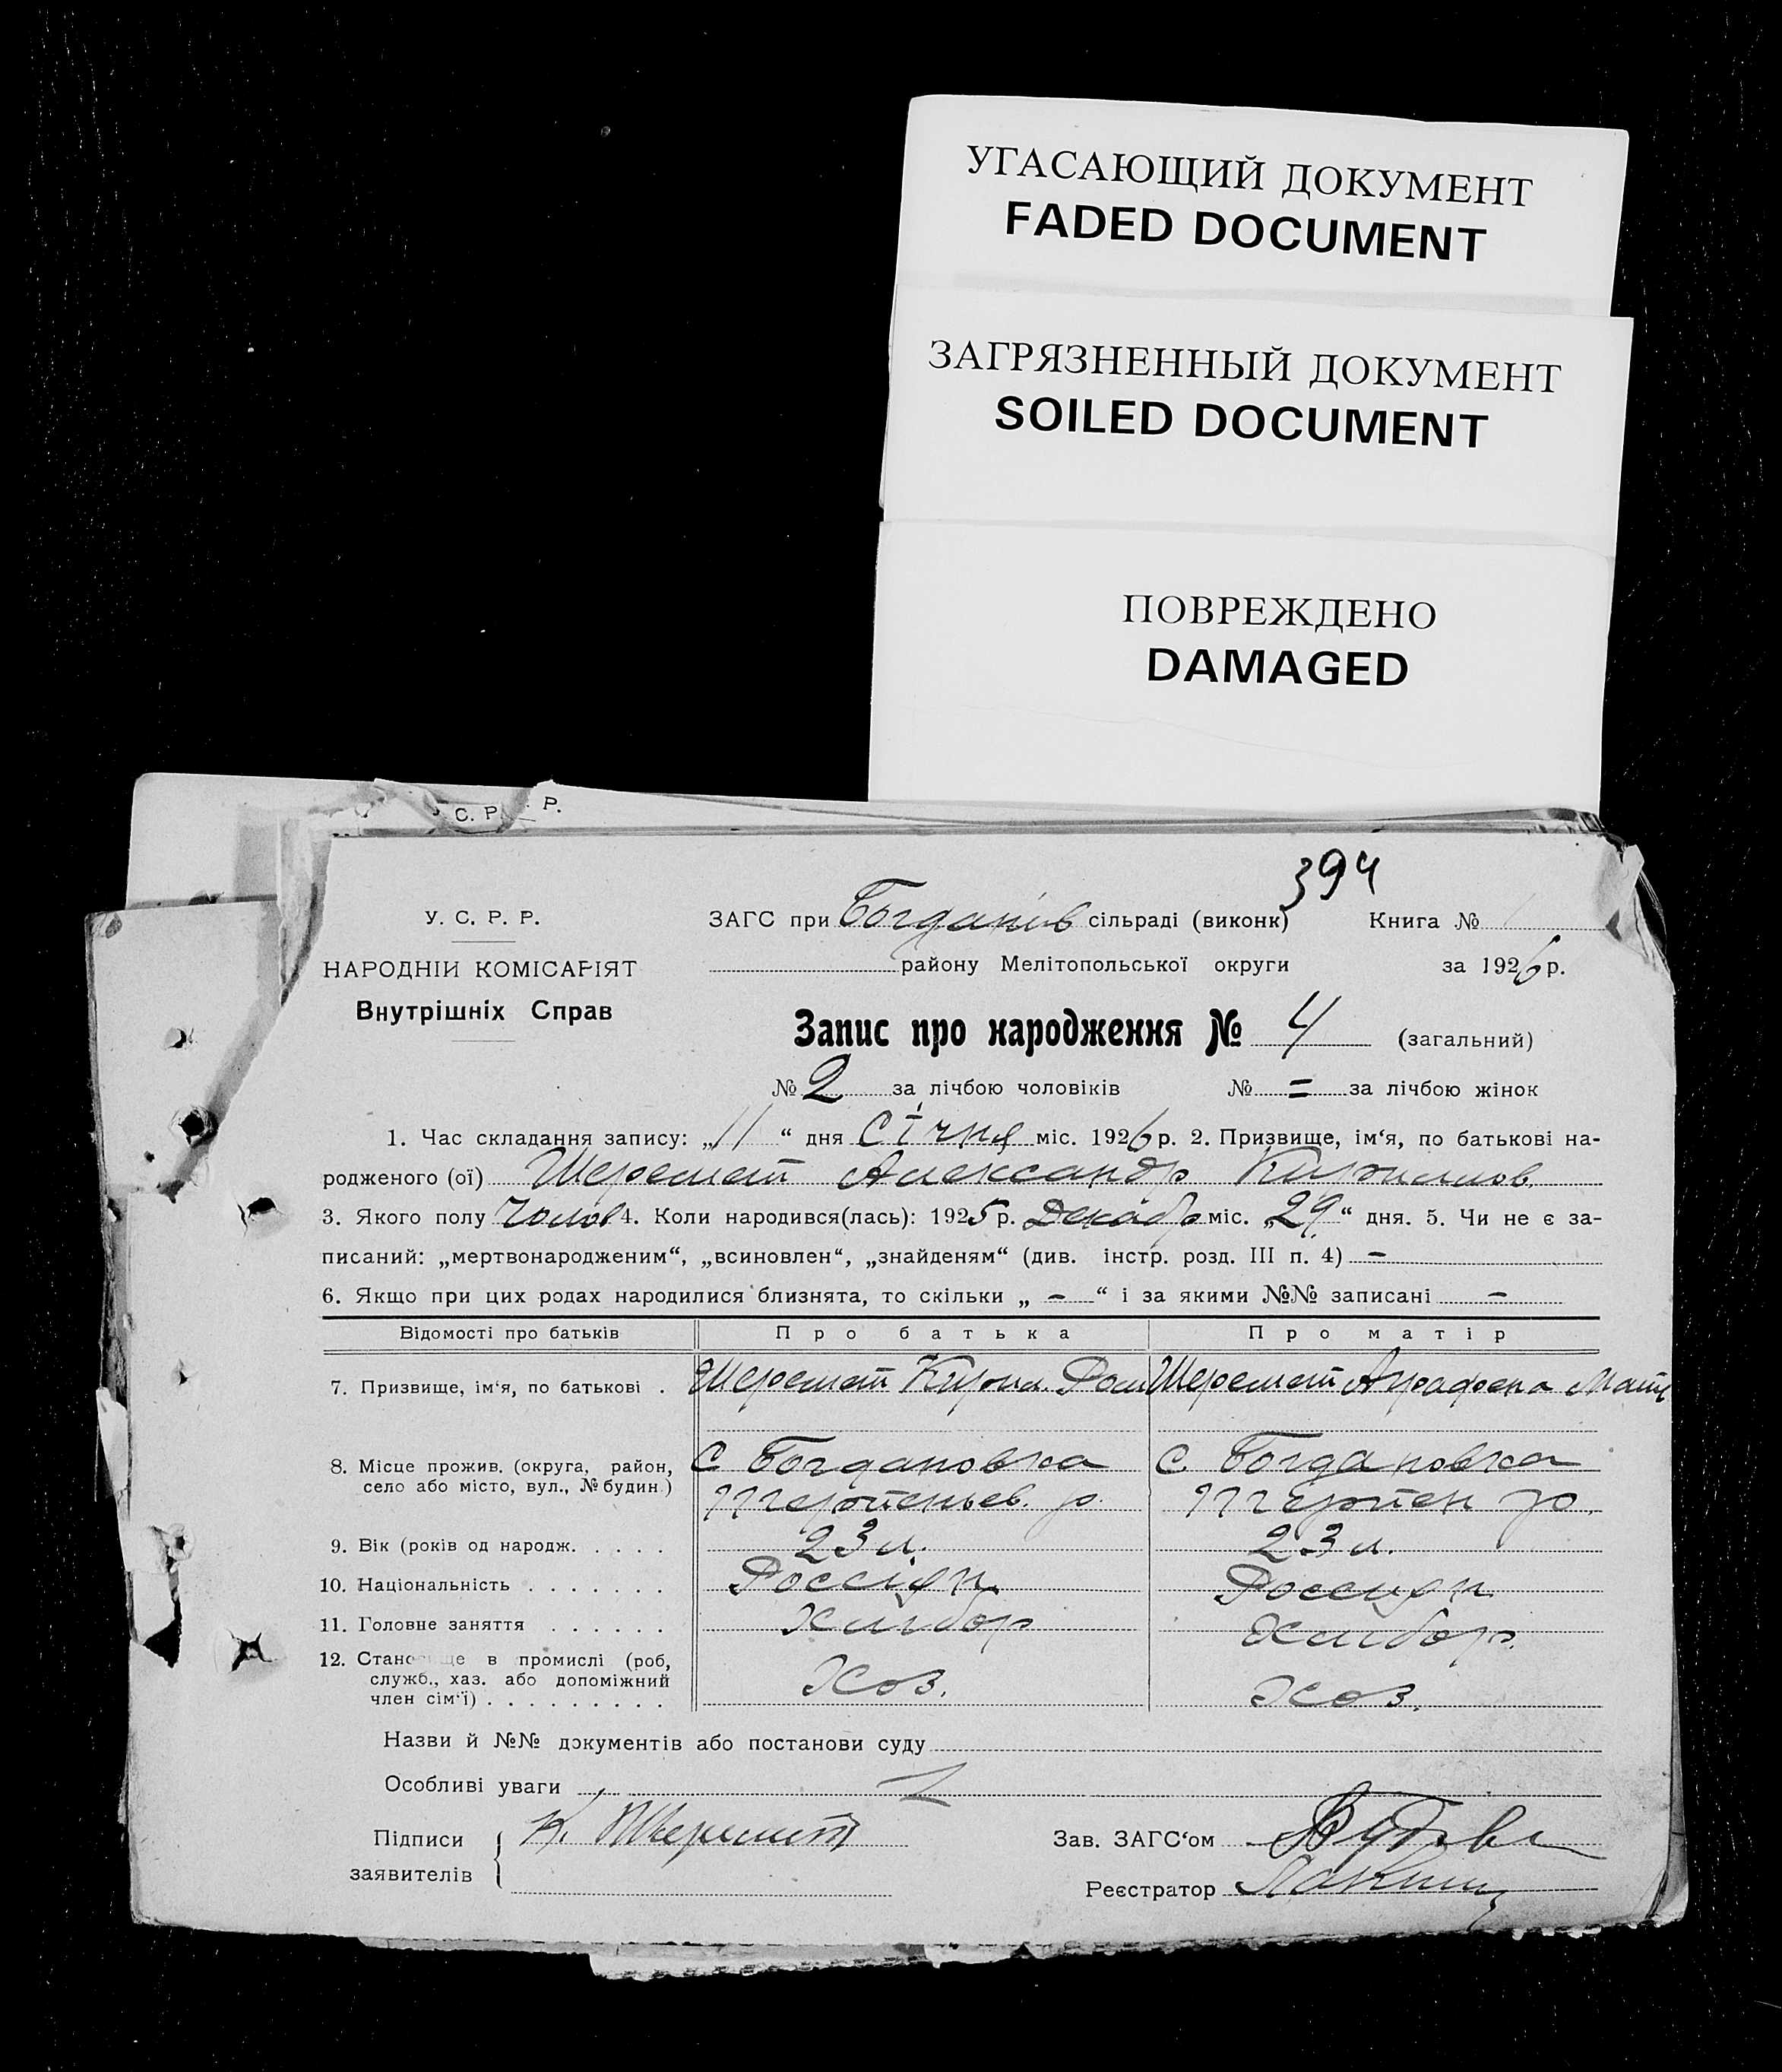 УГАСАЮЩИЙ ДОКУМЕНТ
FADED DOCUMENT
ЗАГРЯЗНЕННЫЙ ДОКУМЕНТ
SOILED DOCUMENT
ПОВРЕЖДЕНО
DAMAGED
С. Р. Р.
394
У. С. Р. Р.
ЗАГС при Богданів сільраді (виконк) Книга № 1
НАРОДНІЙ КОМІСАРІЯТ
району Мелітопольської округи за 1926 р.
Внутрішніх Справ
Запис про народження № 4 (загальний)
№ 2 за лічбою чоловіків № = за лічбою жінок
1. Час складання запису: „11“ дня Січня міс. 1926 р. 2. Призвище, ім‘я, по батькові на-
родженого (ої) Шеремет Александр Кирилов.
3. Якого полу Чолов 4. Коли народився(лась): 1925 р. Декабр міс. „29“ дня. 5. Чи не є за-
писаний: „мертвонародженим“, „всиновлен“, „знайденям“ (див. інстр. розд. III п. 4) –
6. Якщо при цих родах народилися близнята, то скільки „ – “ і за якими №№ записані –
Відомості про батьків Про батька Про матір
7. Призвище, ім‘я, по батькові . Шеремет Кирил. Ром Шеремет Аграфена Матв
8. Місце прожив. (округа, район, С Богдановка С. Богдановка
село або місто, вул., № будин.)
9. Вік (років од народж. . . . . 23 л. 23 л.
10. Національність . . . . . . . Россиян. Россиян.
11. Головне заняття . . . . . . Хлибор Хлибор.
12. Станс ще в промислі (роб, Хоз. Хоз.
служб., хаз. або допоміжний
член сім‘ї) . . . . . . . . .
Назви й №№ документів або постанови суду
Особливі уваги
Підписи К. Шеремет Зав. ЗАГС‘ом
заявителів Реєстратор